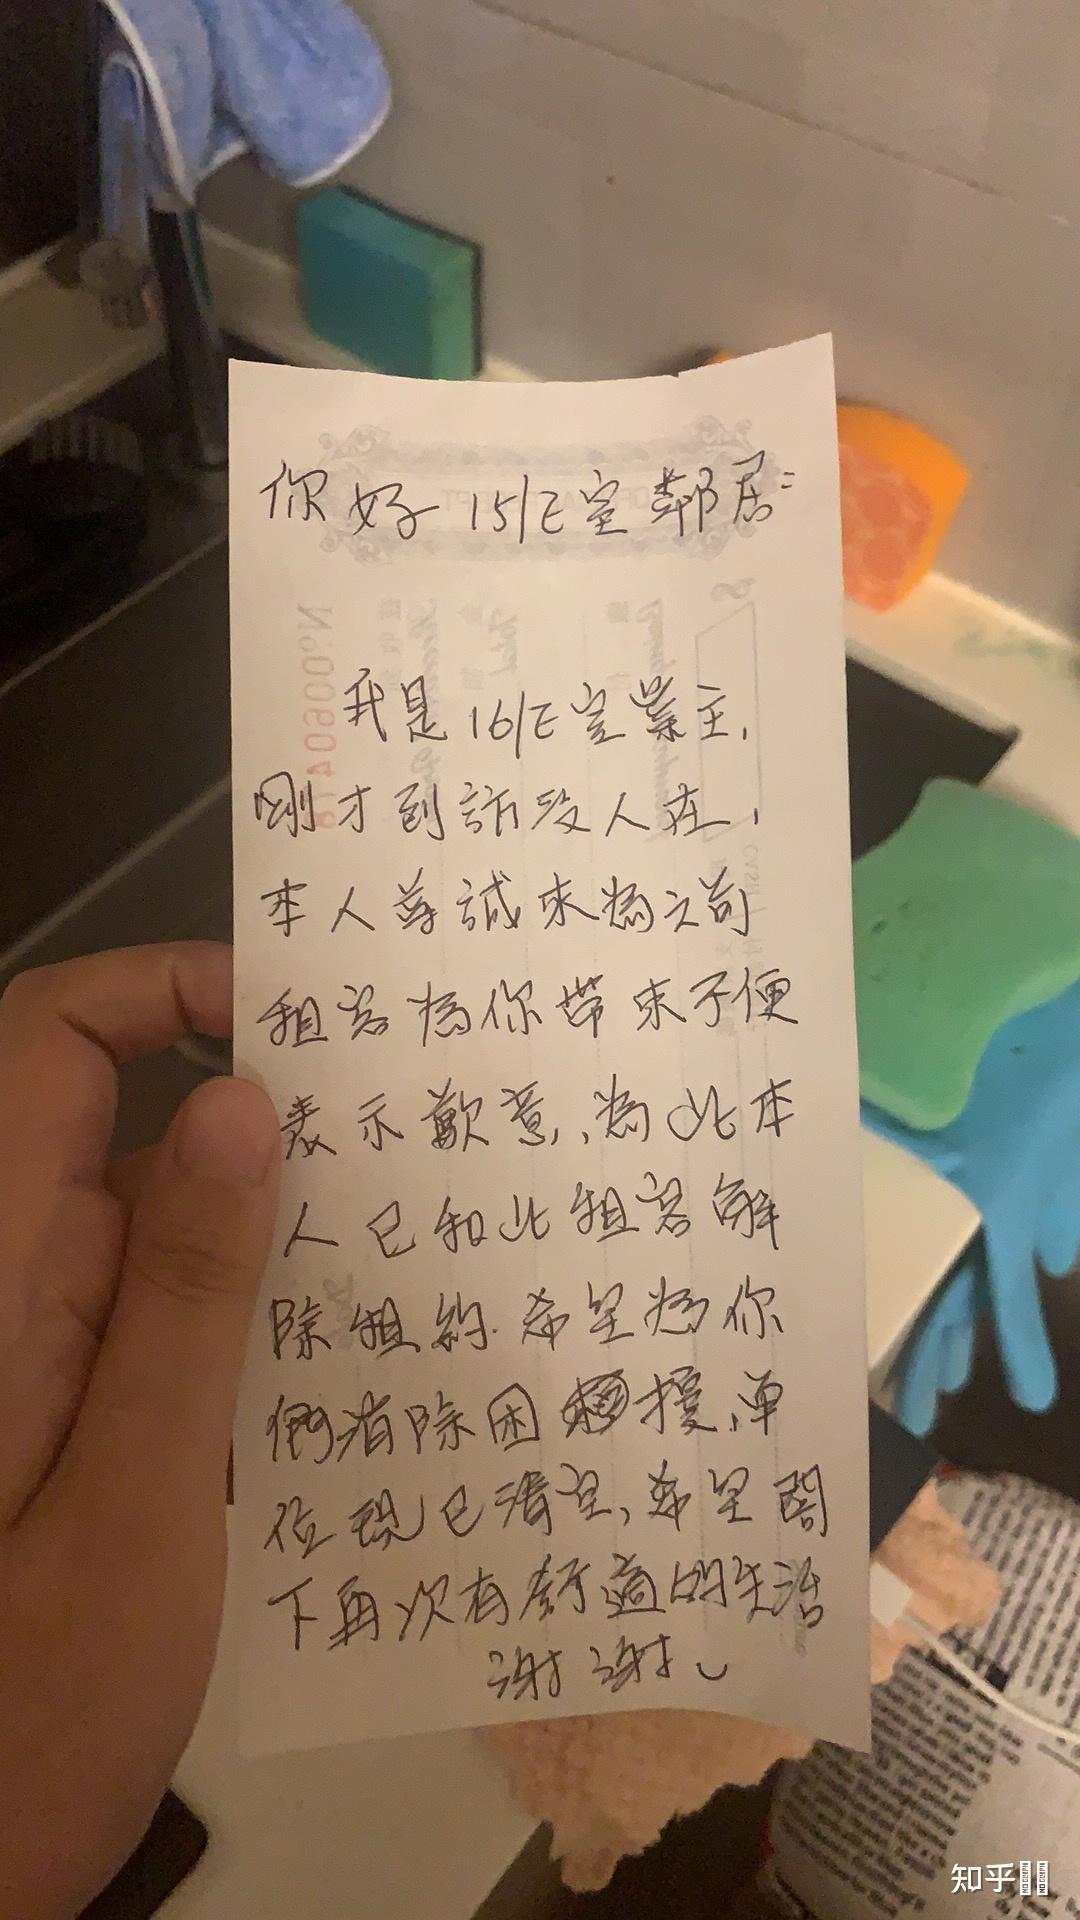 你好 15/E室 鄰居:
我是 16/E室業主,
剛才到訪沒人在,
本人尊誠來為之前
租客為你帶來不便
表示歉意,為此本
人已和此租客解
除租約.希望為你
們消除困擾,單
位現已清空,希望閣
下再次有舒適的生活
謝謝
No 00604
知乎